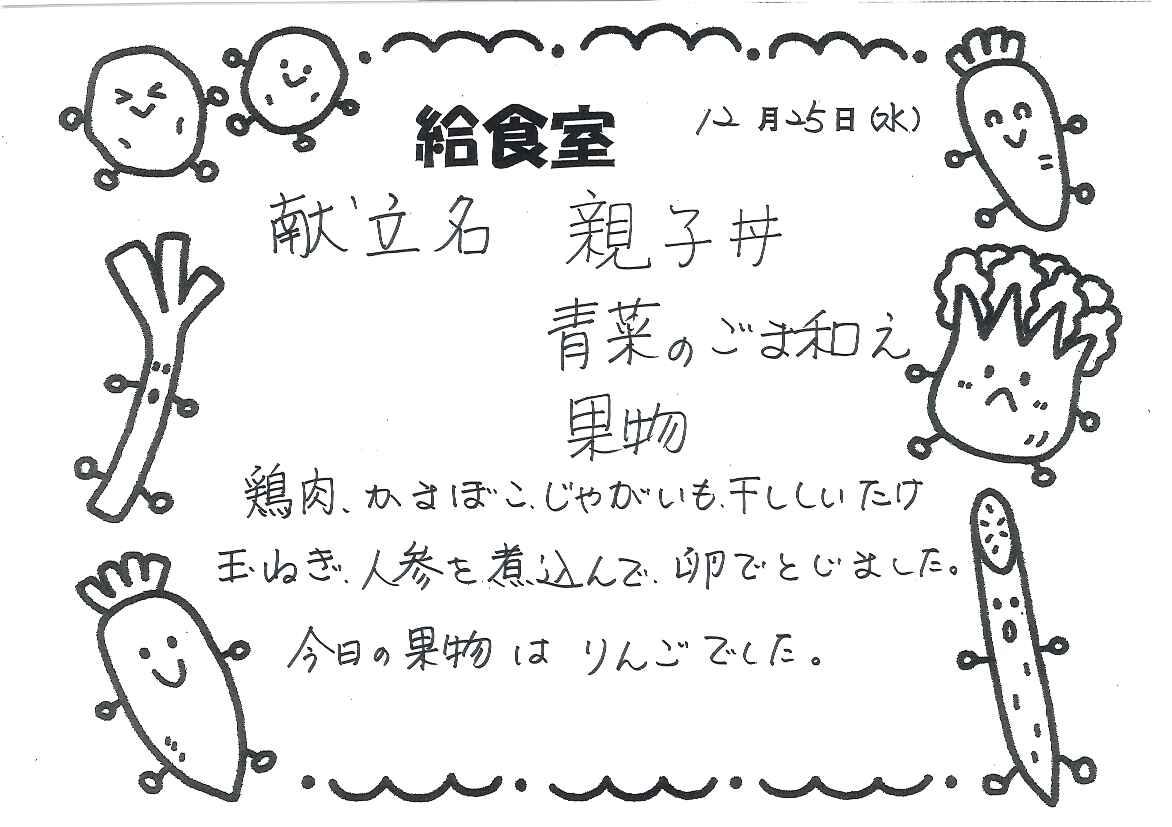 給食室 12月25日(水)
献立名 親子丼
青菜のごま和え
果物
鶏肉、かまぼこ、じゃがいも、干ししいたけ
玉ねぎ、人参を煮込んで、卵でとじました。
今日の果物は りんごでした。